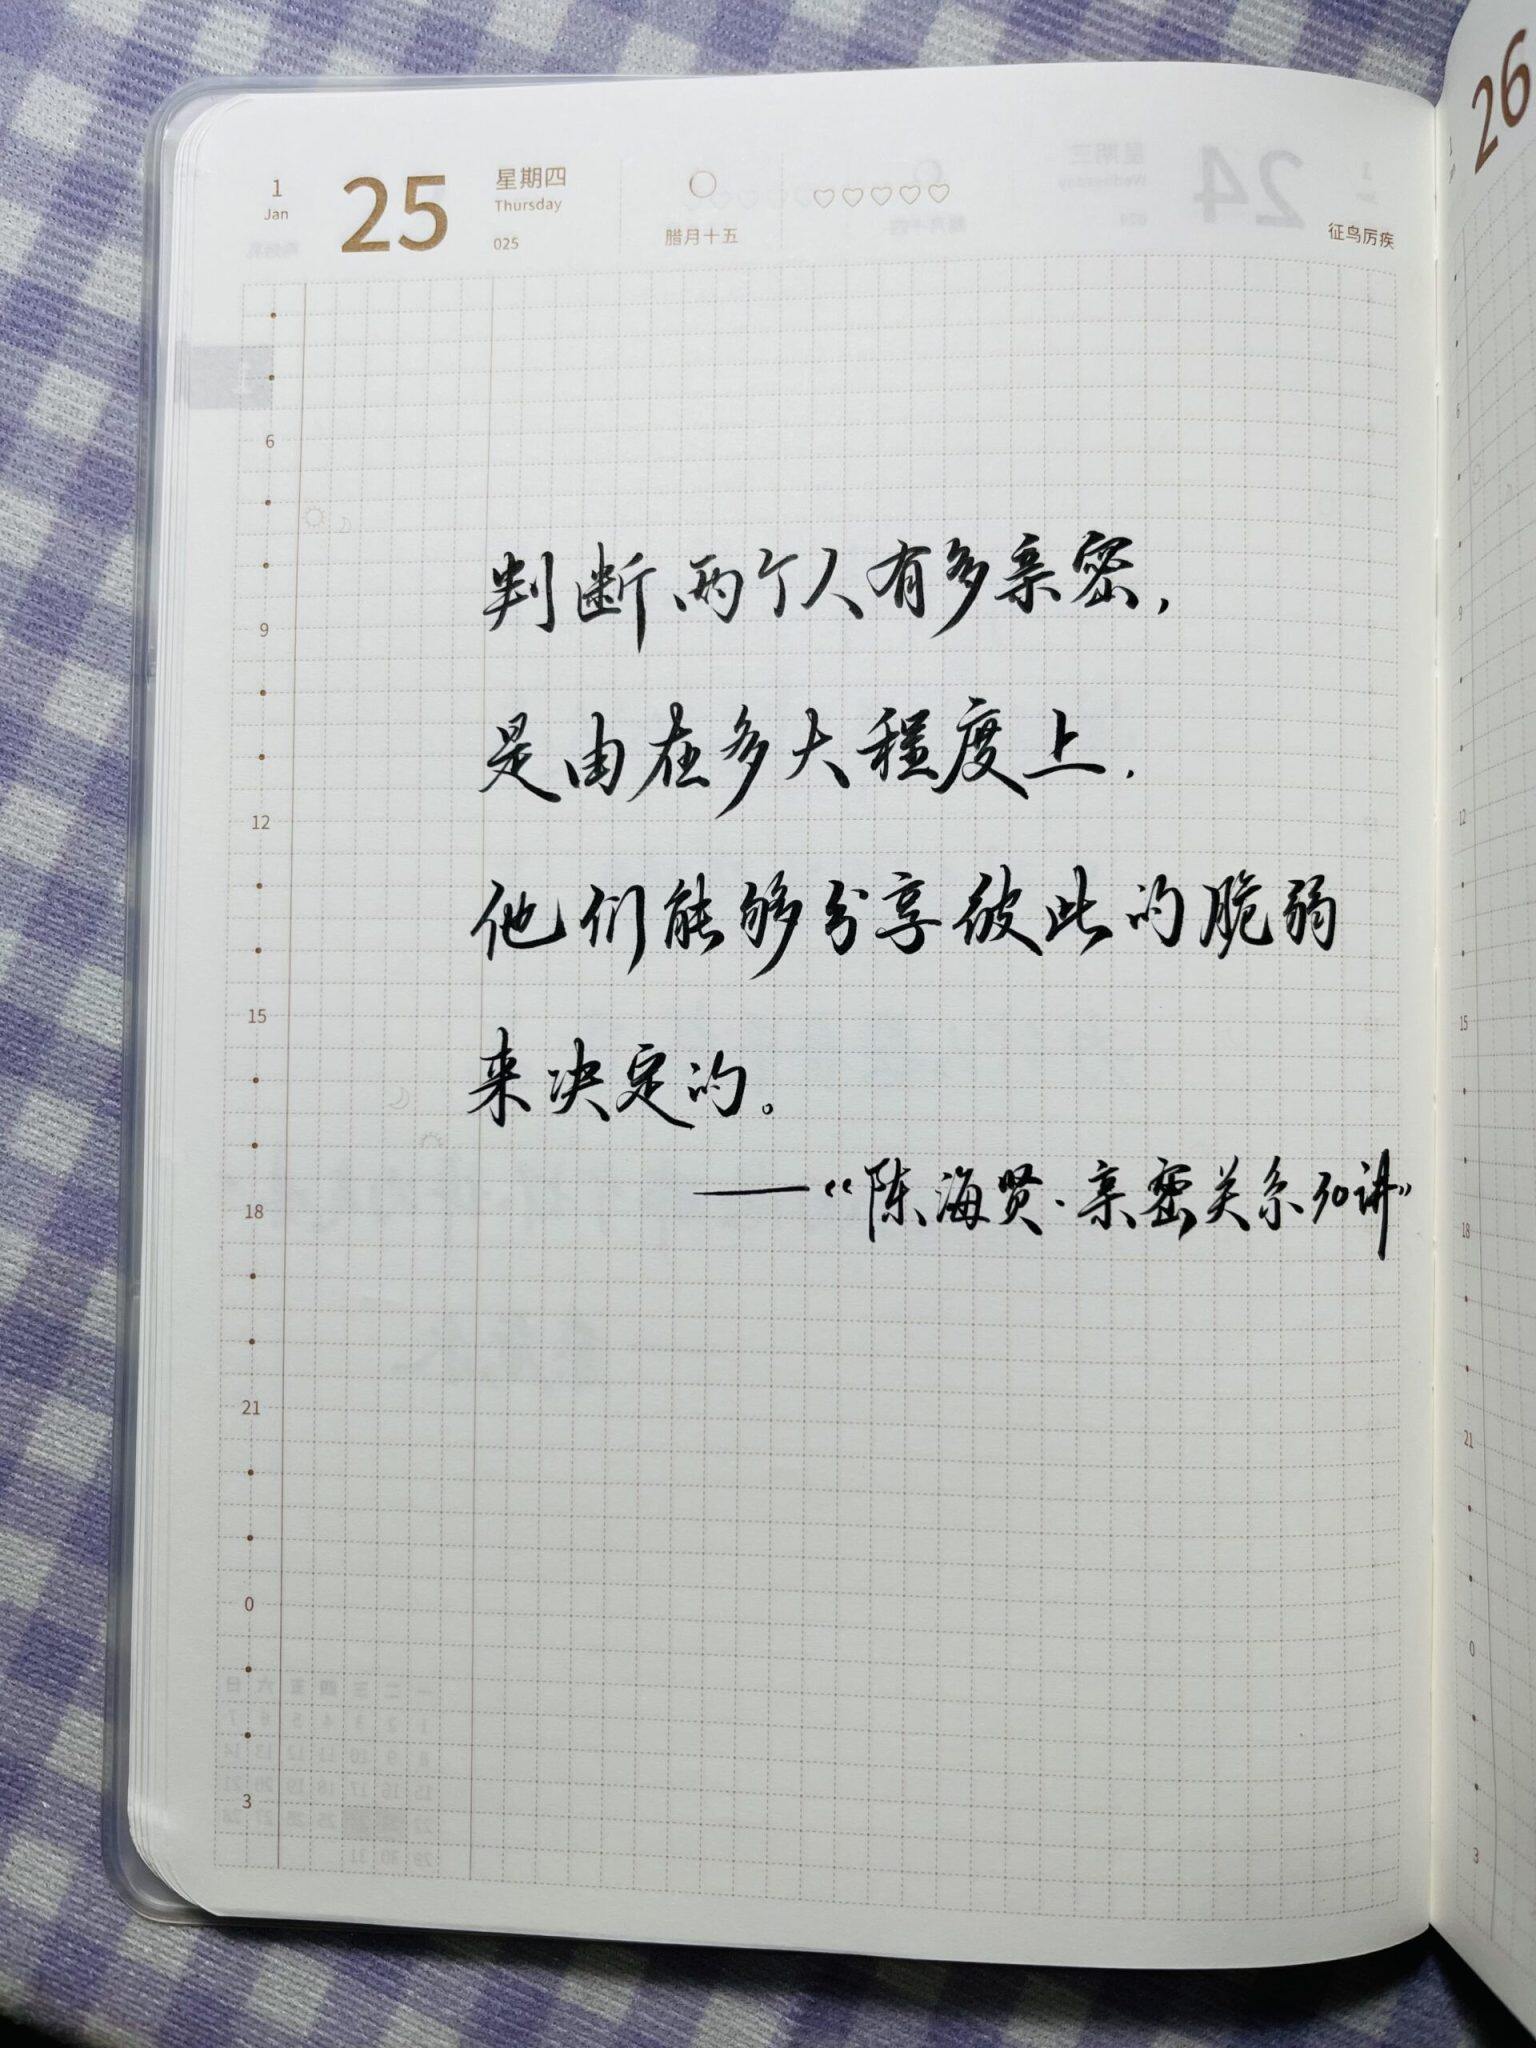 1
Jan
25
星期四
Thursday
025
腊月十五
征鸟厉疾
26
6
9
12
15
18
21
0
3
判断两个人有多亲密,
是由在多大程度上,
他们能够分享彼此的脆弱
来决定的。
——《陈海贤·亲密关系30讲》
6
9
12
15
18
21
0
3